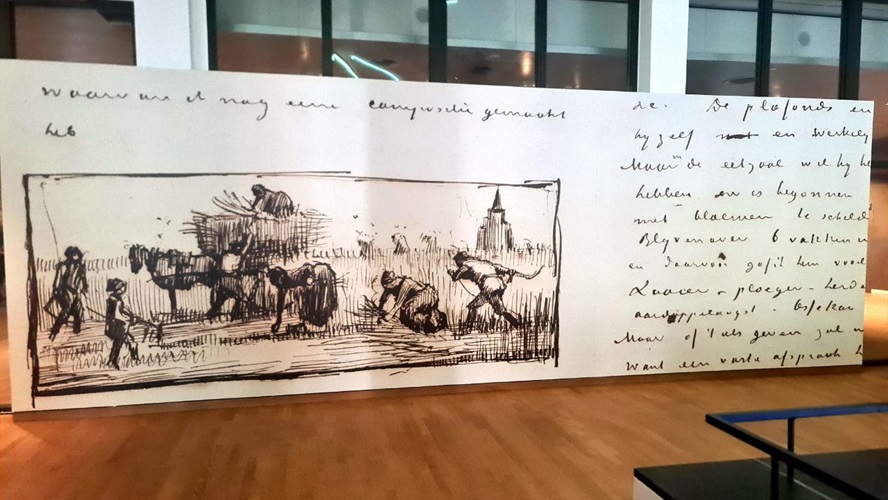 waarvan ik nog eene compositie gemaakt
heb
de. De plafonds en
hy zelf en werkely
Maar de eetzaal wil hy he
hebben en is begonnen
met bloemen te schilde
Blyven over 6 vakken
en daarvan gaf ik hem voor
Zaaier - ploeger - herde
aardappeloogst - ossekar
Maar of ik als geven zal
want een vaste afspraak h